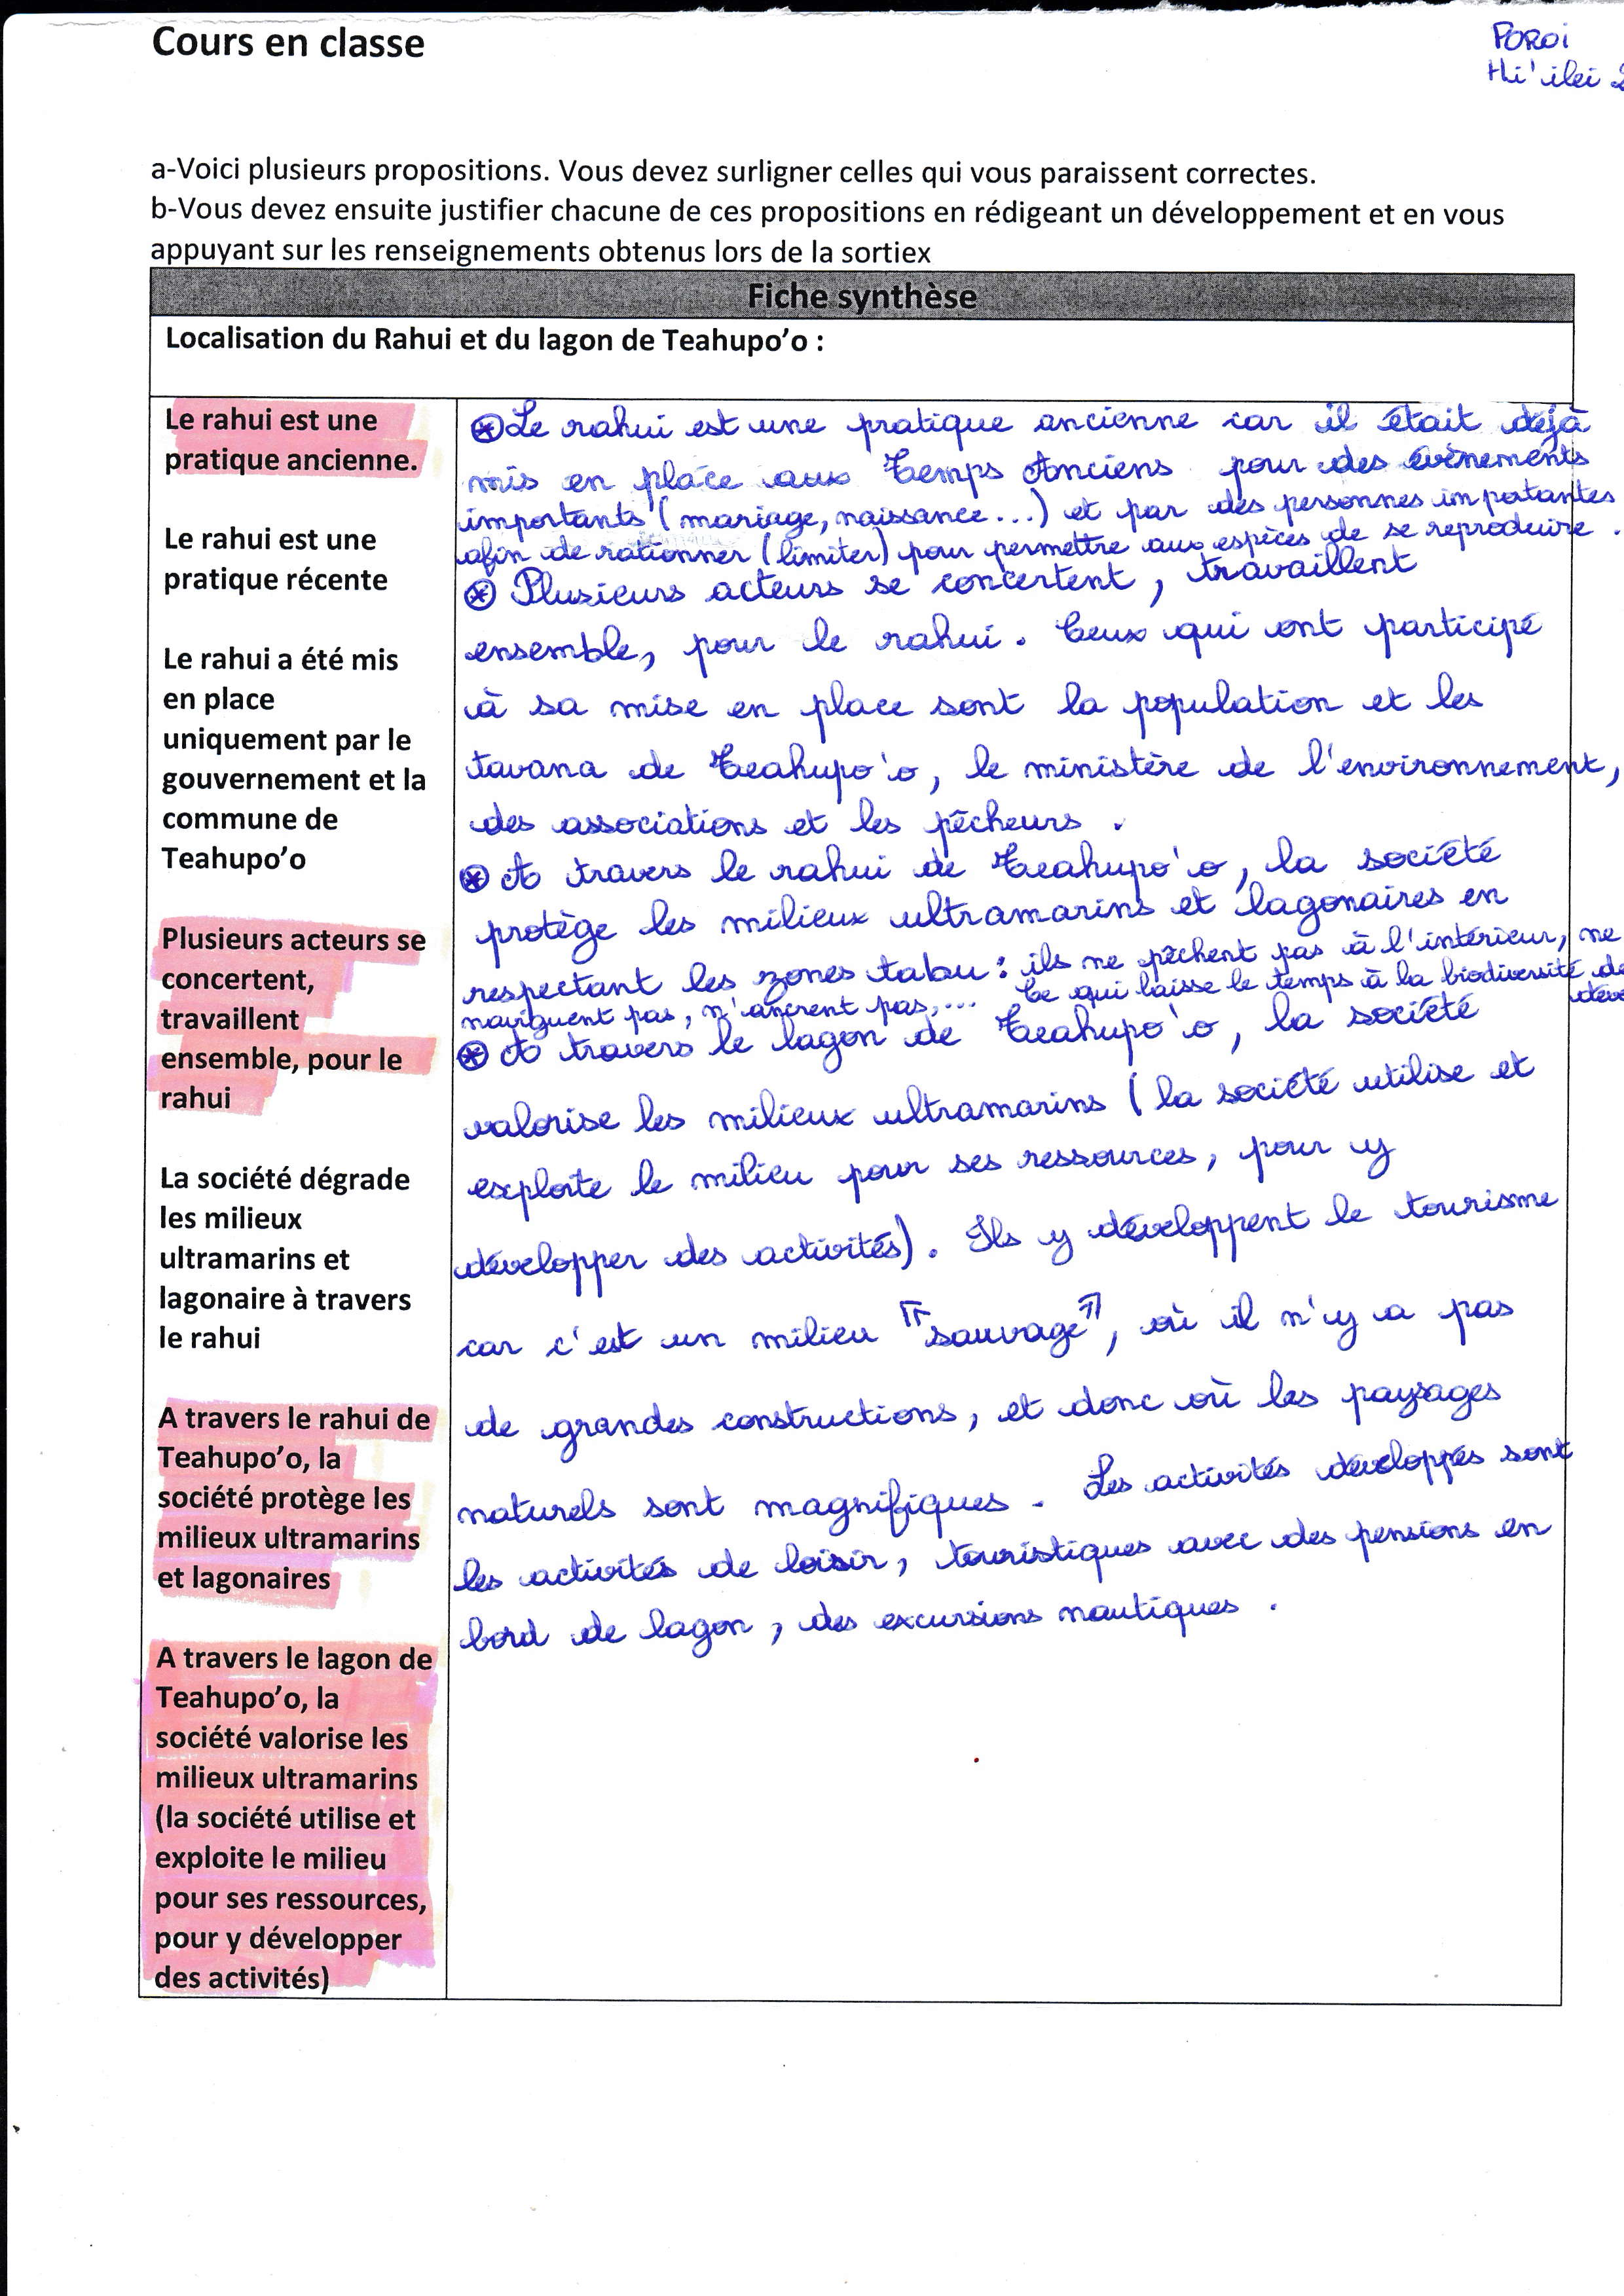 Cours en classe
POROI
Hi'ilei 2
a-Voici plusieurs propositions. Vous devez surligner celles qui vous paraissent correctes.
b-Vous devez ensuite justifier chacune de ces propositions en rédigeant un développement et en vous
appuyant sur les renseignements obtenus lors de la sortiex
Fiche synthèse
Localisation du Rahui et du lagon de Teahupo’o :
Le rahui est une
pratique ancienne.
Le rahui est une
pratique récente
Le rahui a été mis
en place
uniquement par le
gouvernement et la
commune de
Teahupo’o
Plusieurs acteurs se
concertent,
travaillent
ensemble, pour le
rahui
La société dégrade
les milieux
ultramarins et
lagonaire à travers
le rahui
A travers le rahui de
Teahupo’o, la
société protège les
milieux ultramarins
et lagonaires
A travers le lagon de
Teahupo’o, la
société valorise les
milieux ultramarins
(la société utilise et
exploite le milieu
pour ses ressources,
pour y développer
des activités)
Le rahui est une pratique ancienne car il était déjà
mis en place aux Temps Anciens pour des évènements
importants (mariage, naissance...) et par des personnes importantes
afin de rationner (limiter) pour permettre aux espèces de se reproduire.
Plusieurs acteurs se concertent, travaillent
ensemble, pour le rahui. Ceux qui ont participé
à sa mise en place sont la population et les
tavana de Teahupo'o, le ministère de l'environnement,
des associations et les pêcheurs.
A travers le rahui de Teahupo'o, la société
protège les milieux ultramarins et lagonaires en
respectant les zones tabu : ils ne pêchent pas à l'intérieur, ne
naviguent pas, n'ancrent pas,... Ce qui laisse le temps à la biodiversité de
déve
A travers le lagon de Teahupo'o, la société
valorise les milieux ultramarins (la société utilise et
exploite le milieu pour ses ressources, pour y
développer des activités). Ils y développent le tourisme
car c'est un milieu "sauvage", où il n'y a pas
de grandes constructions, et donc où les paysages
naturels sont magnifiques. Les activités développés sont
les activités de loisir, touristiques avec des pensions en
bord de lagon, des excursions nautiques.